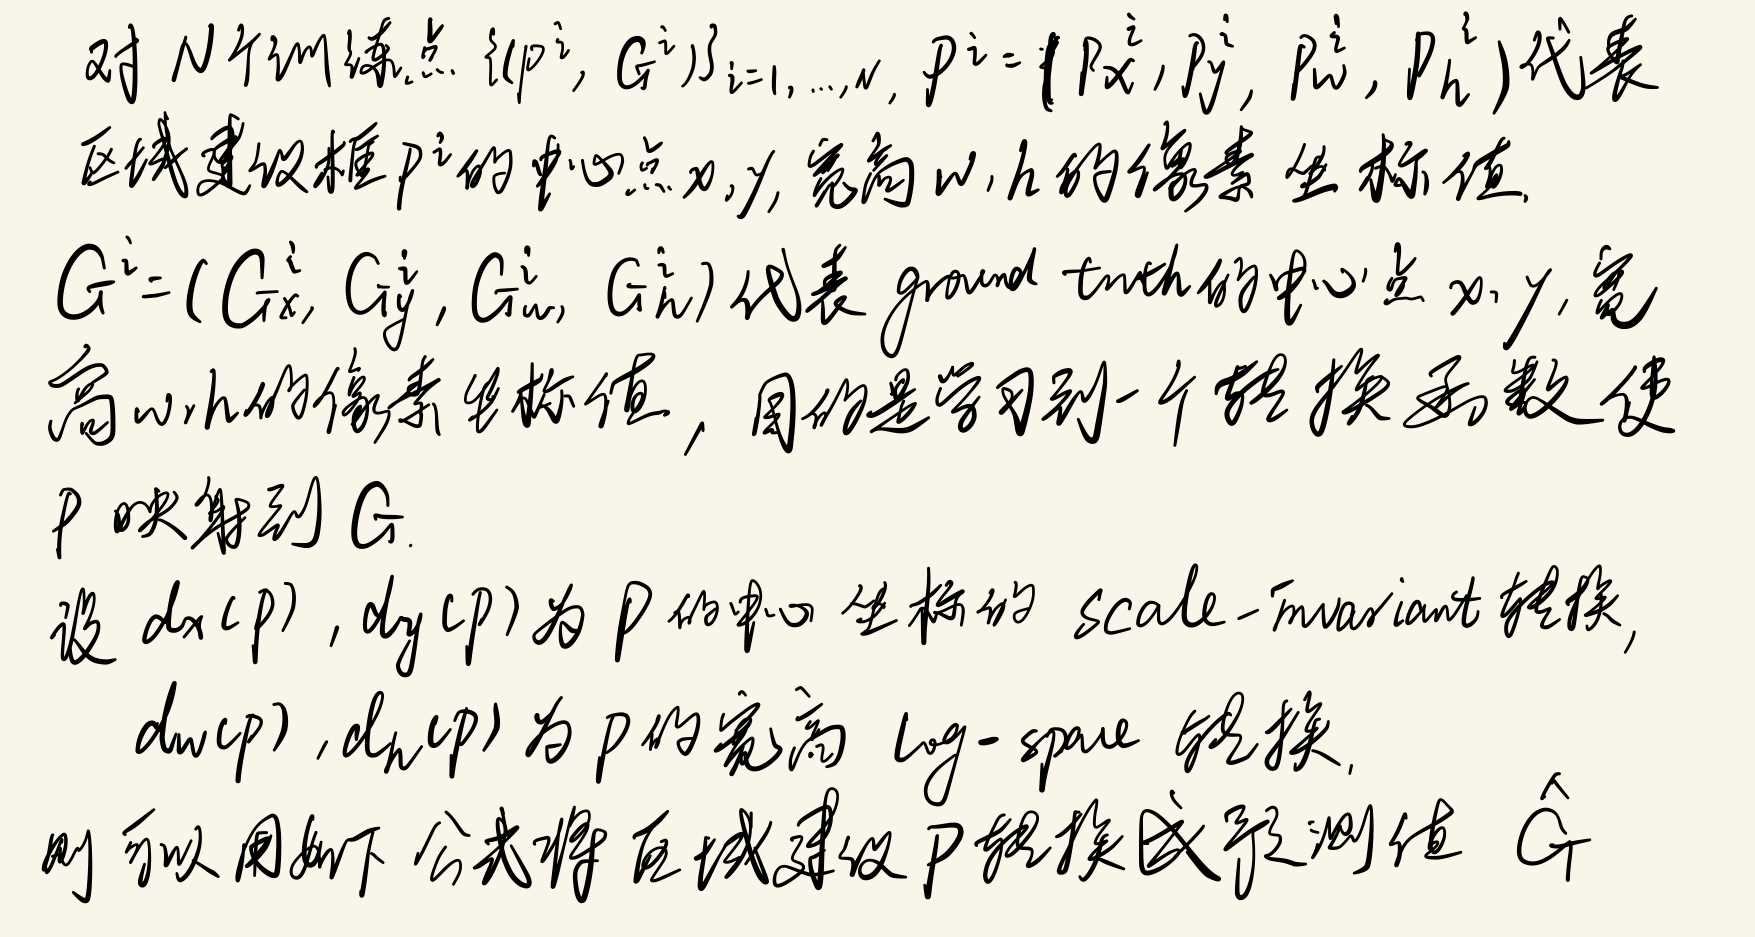 对 N个训练点 {(pⁱ, Gⁱ)}ᵢ₌₁,...,N, Pⁱ = (Pₓⁱ, P_yⁱ, P_wⁱ, P_hⁱ) 代表
区域建议框 Pⁱ 的中心点 x, y, 宽高 w, h 的像素坐标值.
Gⁱ = (Gₓⁱ, G_yⁱ, G_wⁱ, G_hⁱ) 代表 ground truth 的中心点 x, y, 宽
高 w, h 的像素坐标值, 目的是学习到一个转换函数使
P 映射到 G.
设 dx(p), dy(p) 为 P 的中心坐标的 scale-invariant 转换,
dw(p), dh(p) 为 P 的宽高 log-space 转换.
则可以用如下公式将区域建议 P 转换成预测值 Ĝ